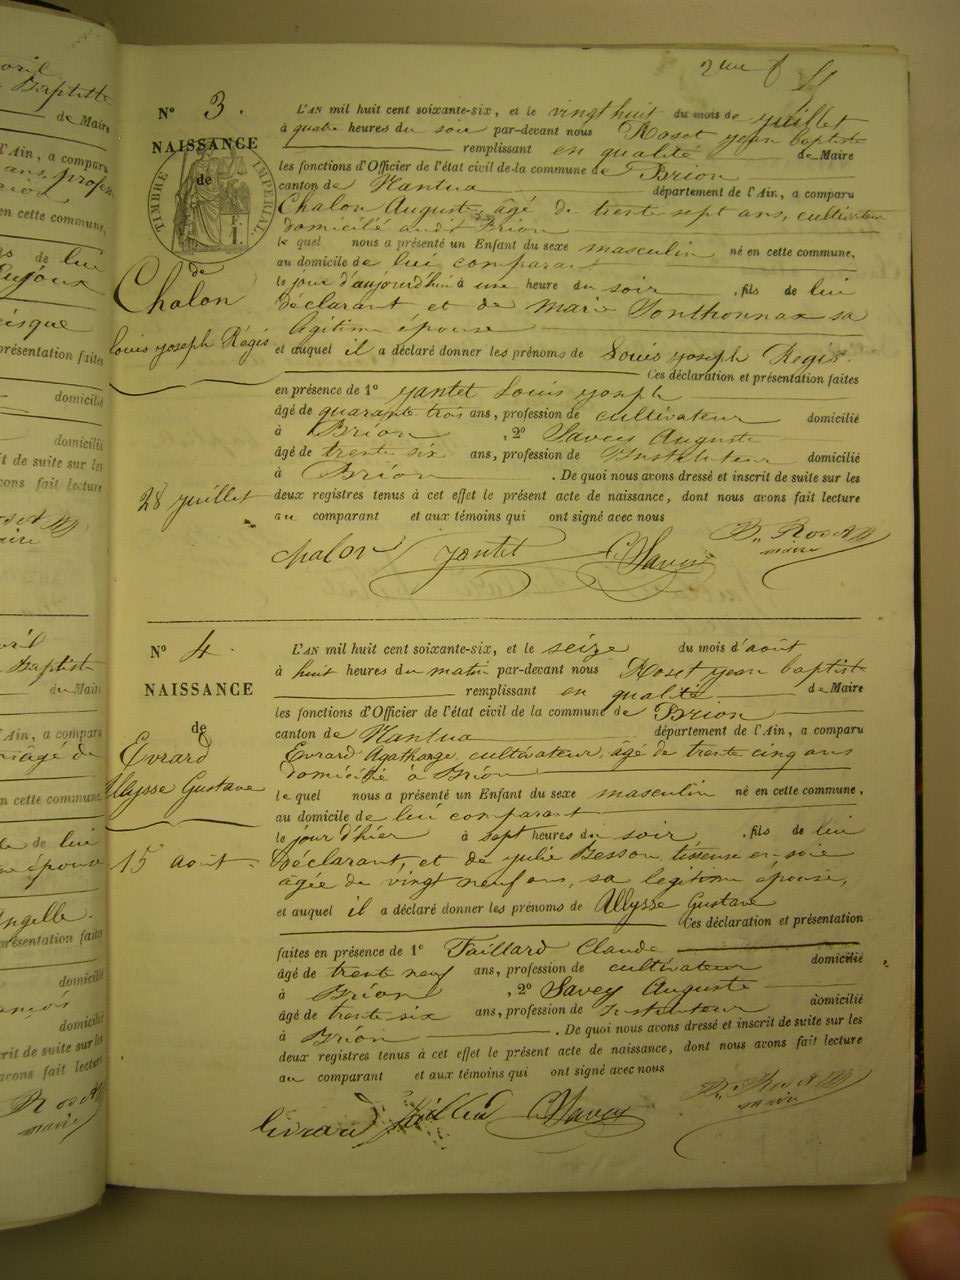 2me f
N° 3.
NAISSANCE
de
TIMBRE IMPÉRIAL
1 F.
de
Chalon
Louis joseph Régis
28 juillet
L'AN mil huit cent soixante-six, et le vingt huit du mois de juillet
à quatre heures du soir par-devant nous Roset jean baptiste
remplissant en qualité de Maire
les fonctions d'Officier de l'état civil de la commune de Brion
canton de Nantua département de l'Ain, a comparu
Chalon Auguste, âgé de trente sept ans, cultivateur
domicilié audit Brion
le quel nous a présenté un Enfant du sexe masculin né en cette commune,
au domicile de lui comparant
le jour d'aujourd'hui à une heure du soir, fils de lui
déclarant et de Marie Sonthonnax sa
légitime épouse
et auquel il a déclaré donner les prénoms de Louis joseph Régis.
Ces déclaration et présentation faites
en présence de 1° Jantet Louis joseph
âgé de quarante trois ans, profession de cultivateur domicilié
à Brion, 2° Savey Auguste
âgé de trente six ans, profession de Instituteur domicilié
à Brion. De quoi nous avons dressé et inscrit de suite sur les
deux registres tenus à cet effet le présent acte de naissance, dont nous avons fait lecture
au comparant et aux témoins qui ont signé avec nous
chalon Jantet Savey Roset
maire
N° 4.
NAISSANCE
de
Evrard
Ulysse Gustave
15 août
L'AN mil huit cent soixante-six, et le seize du mois d'août
à huit heures du matin par-devant nous Roset jean baptiste
remplissant en qualité de Maire
les fonctions d'Officier de l'état civil de la commune de Brion
canton de Nantua département de l'Ain, a comparu
Evrard Agathange, cultivateur, âgé de trente cinq ans
domicilié à Brion
le quel nous a présenté un Enfant du sexe masculin né en cette commune,
au domicile de lui comparant
le jour d'hier à sept heures du soir, fils de lui
déclarant, et de julie Besson, tisseuse en soie
âgée de vingt neuf ans, sa légitime épouse,
et auquel il a déclaré donner les prénoms de Ullysse Gustave
Ces déclaration et présentation
faites en présence de 1° Taillard Claude
âgé de trente neuf ans, profession de cultivateur domicilié
à Brion, 2° Savey Auguste
âgé de trente six ans, profession de Instituteur domicilié
à Brion. De quoi nous avons dressé et inscrit de suite sur les
deux registres tenus à cet effet le présent acte de naissance, dont nous avons fait lecture
au comparant et aux témoins qui ont signé avec nous
Evrard Taillard Savey Roset
maire